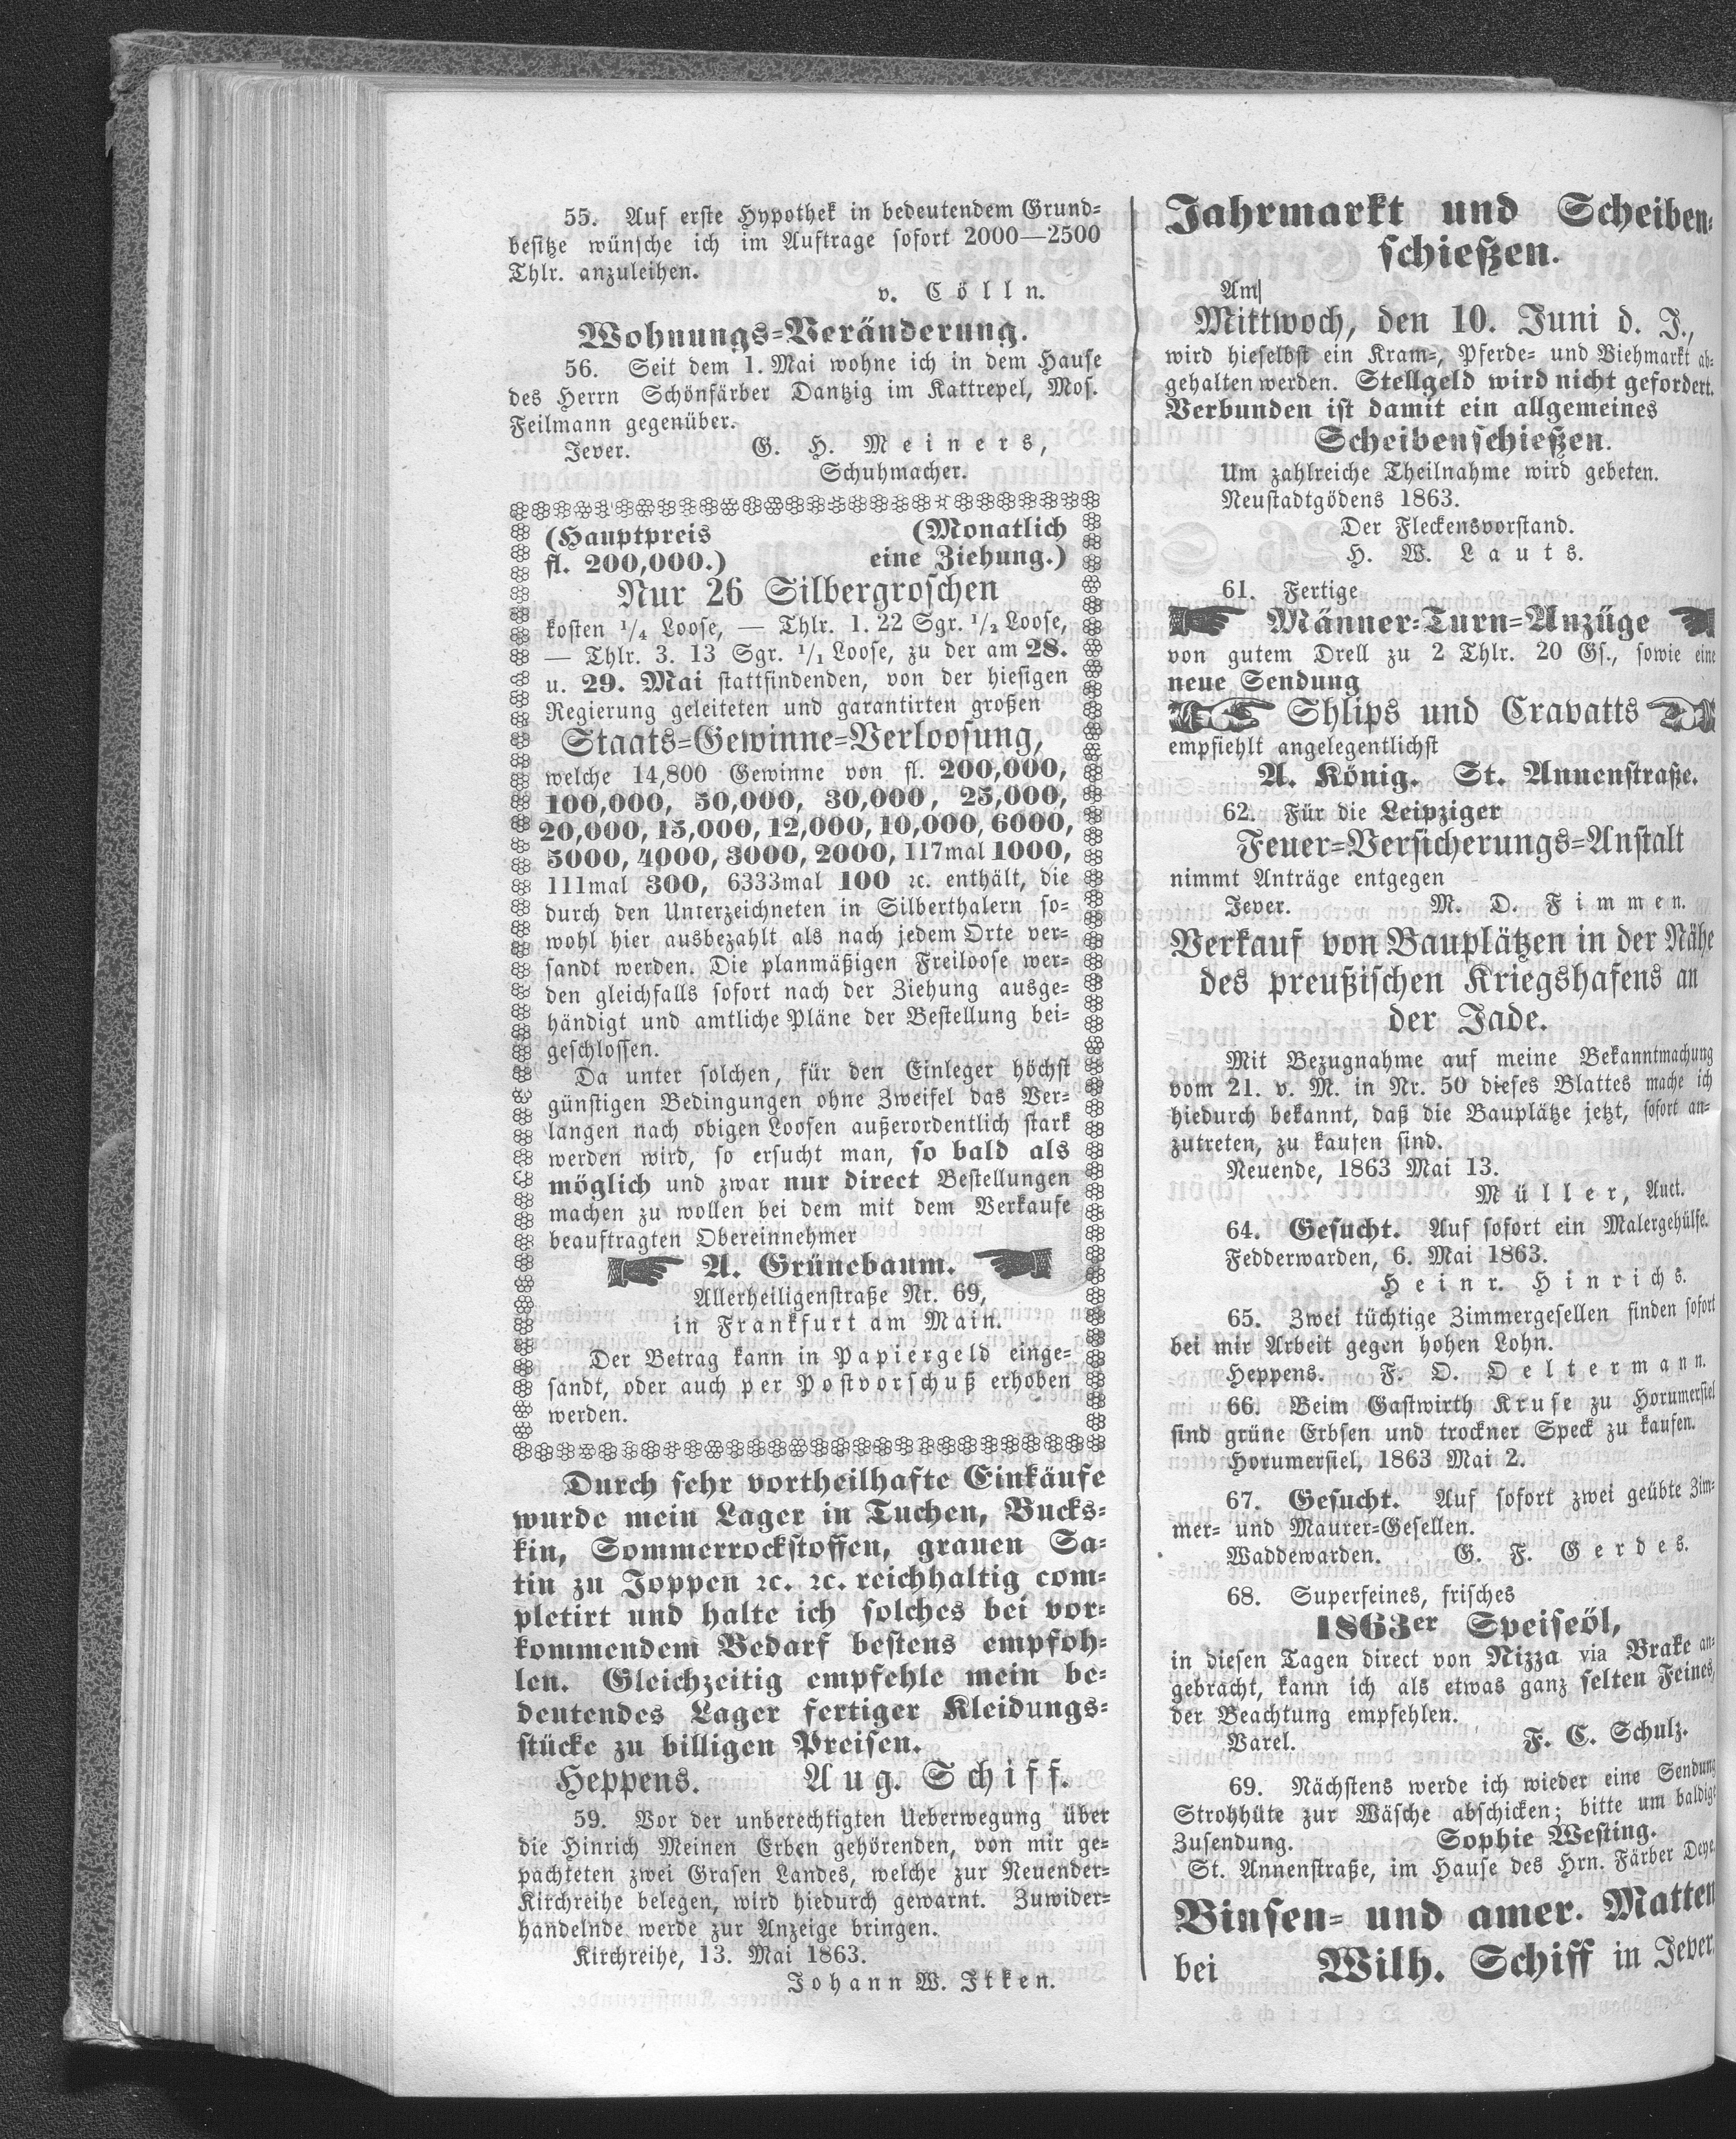 55. Auf erste Hypothek in bedeutendem Grund-
besitze wünsche ich im Auftrage sofort 2000—2500
Thlr. anzuleihen.
v. Cölln.
Wohnungs-Veränderung.
56. Seit dem 1. Mai wohne ich in dem Hause
des Herrn Schönfärber Dantzig im Kattrepel, Mos.
Feilmann gegenüber.
Jever. G. H. Meiners,
Schuhmacher.
(Hauptpreis (Monatlich
fl. 200,000.) eine Ziehung.)
Nur 26 Silbergroschen
kosten 1/4 Loose, — Thlr. 1. 22 Sgr. 1/2 Loose,
— Thlr. 3. 13 Sgr. 1/1 Loose, zu der am 28.
u. 29. Mai stattfindenden, von der hiesigen
Regierung geleiteten und garantirten großen
Staats-Gewinne-Verloosung,
welche 14,800 Gewinne von fl. 200,000,
100,000, 50,000, 30,000, 25,000,
20,000, 15,000, 12,000, 10,000, 6000,
5000, 4000, 3000, 2000, 117mal 1000,
111mal 300, 6333mal 100 ꝛc. enthält, die
durch den Unterzeichneten in Silberthalern so-
wohl hier ausbezahlt als nach jedem Orte ver-
sandt werden. Die planmäßigen Freiloose wer-
den gleichfalls sofort nach der Ziehung ausge-
händigt und amtliche Pläne der Bestellung bei-
geschlossen.
Da unter solchen, für den Einleger höchst
günstigen Bedingungen ohne Zweifel das Ver-
langen nach obigen Loosen außerordentlich stark
werden wird, so ersucht man, so bald als
möglich und zwar nur direct Bestellungen
machen zu wollen bei dem mit dem Verkaufe
beauftragten Obereinnehmer
A. Grünebaum.
Allerheiligenstraße Nr. 69,
in Frankfurt am Main.
Der Betrag kann in Papiergeld einge-
sandt, oder auch per Postvorschuß erhoben
werden.
Durch sehr vortheilhafte Einkäufe
wurde mein Lager in Tuchen, Bucks-
kin, Sommerrockstoffen, grauen Sa-
tin zu Joppen ꝛc. ꝛc. reichhaltig com-
pletirt und halte ich solches bei vor-
kommendem Bedarf bestens empfoh-
len. Gleichzeitig empfehle mein be-
deutendes Lager fertiger Kleidungs-
stücke zu billigen Preisen.
Heppens. Aug. Schiff.
59. Vor der unberechtigten Ueberwegung über
die Hinrich Meinen Erben gehörenden, von mir ge-
pachteten zwei Grasen Landes, welche zur Neuender-
Kirchreihe belegen, wird hiedurch gewarnt. Zuwider-
handelnde werde zur Anzeige bringen.
Kirchreihe, 13. Mai 1863.
Johann W. Itken.
Jahrmarkt und Scheiben-
schießen.
Am
Mittwoch, den 10. Juni d. J.,
wird hieselbst ein Kram-, Pferde- und Viehmarkt ab-
gehalten werden. Stellgeld wird nicht gefordert.
Verbunden ist damit ein allgemeines
Scheibenschießen.
Um zahlreiche Theilnahme wird gebeten.
Neustadtgödens 1863.
Der Fleckensvorstand.
H. W. Lauts.
61. Fertige
Männer-Turn-Anzüge
von gutem Drell zu 2 Thlr. 20 Gs., sowie eine
neue Sendung
Shlips und Cravatts
empfiehlt angelegentlichst
A. König. St. Annenstraße.
62. Für die Leipziger
Feuer-Versicherungs-Anstalt
nimmt Anträge entgegen
Jever. M. D. Fimmen.
Verkauf von Bauplätzen in der Nähe
des preußischen Kriegshafens an
der Jade.
Mit Bezugnahme auf meine Bekanntmachung
vom 21. v. M. in Nr. 50 dieses Blattes mache ich
hiedurch bekannt, daß die Bauplätze jetzt, sofort an-
zutreten, zu kaufen sind.
Neuende, 1863 Mai 13.
Müller, Auct.
64. Gesucht. Auf sofort ein Malergehülfe.
Fedderwarden, 6. Mai 1863.
Heinr. Hinrichs.
65. Zwei tüchtige Zimmergesellen finden sofort
bei mir Arbeit gegen hohen Lohn.
Heppens. F. O. Oeltermann.
66. Beim Gastwirth Kruse zu Horumersiel
sind grüne Erbsen und trockner Speck zu kaufen.
Horumersiel, 1863 Mai 2.
67. Gesucht. Auf sofort zwei geübte Zim-
mer- und Maurer-Gesellen.
Waddewarden. G. F. Gerdes.
68. Superfeines, frisches
1863er Speiseöl,
in diesen Tagen direct von Nizza via Brake an-
gebracht, kann ich als etwas ganz selten Feines,
der Beachtung empfehlen.
Varel. F. C. Schulz.
69. Nächstens werde ich wieder eine Sendung
Strohhüte zur Wäsche abschicken; bitte um baldige
Zusendung. Sophie Westing.
St. Annenstraße, im Hause des Hrn. Färber Deye.
Binsen- und amer. Matten
bei Wilh. Schiff in Jever.